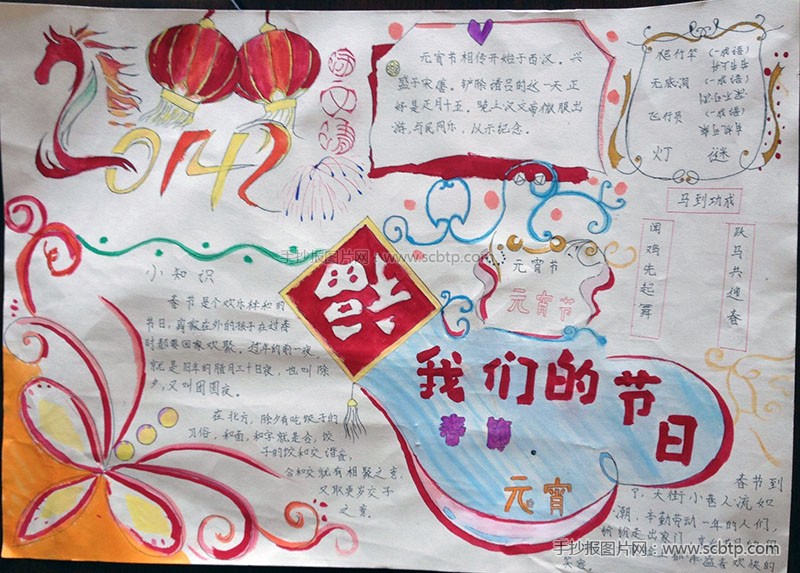 2014
元宵节相传开始于西汉，兴
盛于宋唐。铲除诸吕的这一天正
好是正月十五。晚上汉文帝微服出
游，与民同乐，以示纪念。
爬竹竿 (一成语)
无底洞 (一成语)
飞行员 (一成语)
灯 谜
马到功成
闻鸡先起舞
跃马共迎春
手抄报图片网：www.scbtp.com
福
元宵节
元宵节
小知识
春节是个欢乐祥和的
节日，离家在外的孩子在过春
时都要回家欢聚。过年的前一夜，
就是旧年的腊月三十日夜，也叫除
夕，又叫团圆夜。
在北方，除夕有吃饺子的
习俗，和面，和字就是合，饺
子的饺和交谐音，
合和交就有相聚之意，
又取更岁交子
之意。
我们的节日
春节
元宵
春节到
了，大街小巷人流如
潮，辛勤劳动一年的人们，
纷纷走出家门，
盈着欢快的
笑容
手抄报图片网：www.scbtp.com